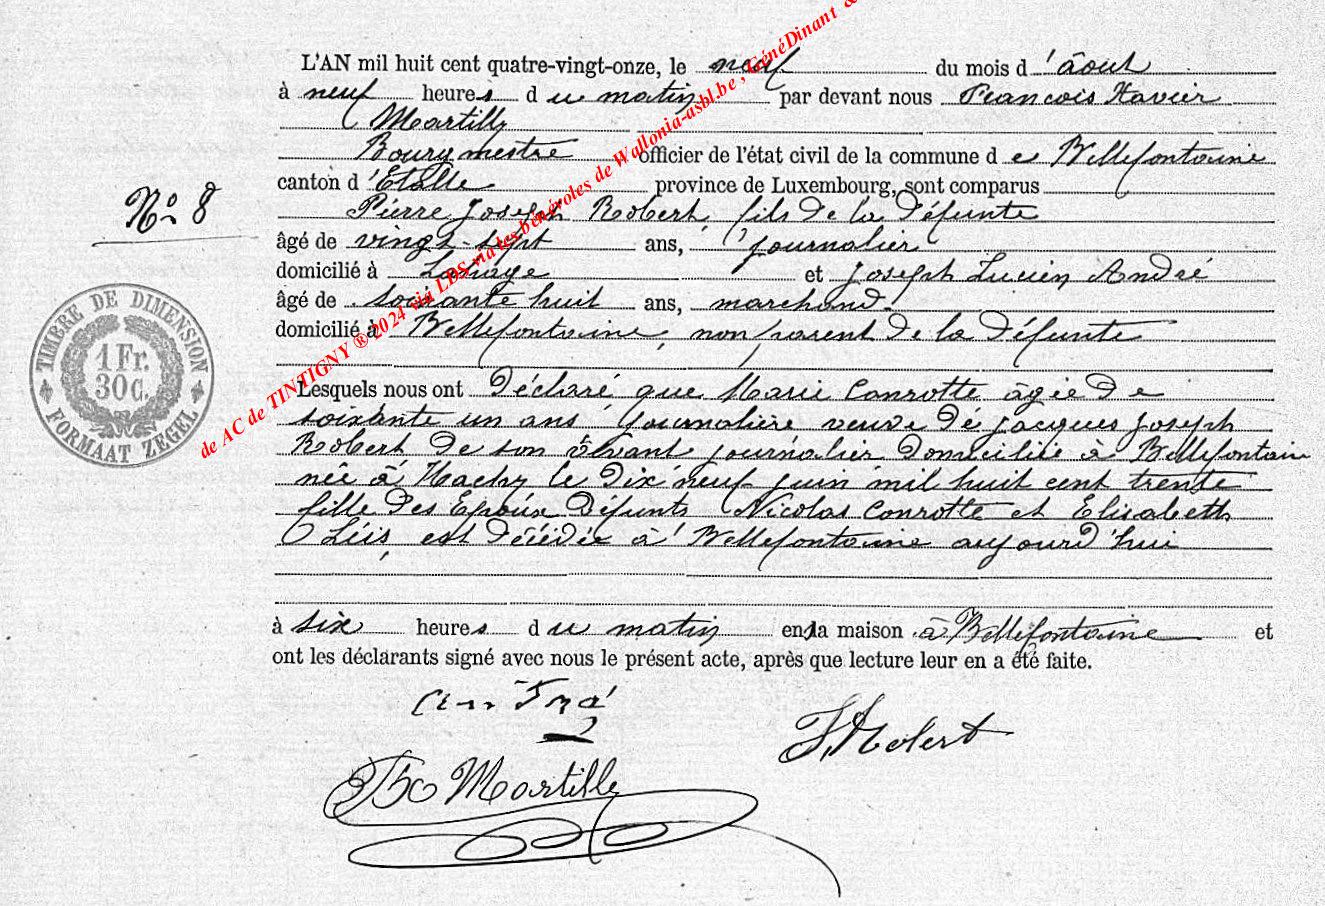 L'AN mil huit cent quatre-vingt-onze, le neuf du mois d'âout
à neuf heures du matin par devant nous François Xavier
Martilly
Bourgmestre officier de l'état civil de la commune de Bellefontaine
canton d'Etalle province de Luxembourg, sont comparus
Pierre Joseph Robert, fils de la défunte
âgé de vingt-sept ans, journalier
domicilié à Lahage et Joseph Lucien André
âgé de soixante huit ans, marchand.
domicilié à Bellefontaine, non parent de la défunte
Lesquels nous ont déclaré que Marie Conrotte âgée de
soixante un ans journalière veuve de Jacques Joseph
Robert de son vivant journalier domiciliée à Bellefontain
née à Hachy le dix neuf juin mil huit cent trente
fille des Epoux défunts Nicolas Conrotte et Elisabeth
est décédée à Bellefontaine aujourd'hui
à six heures du matin en la maison à Bellefontaine et
ont les déclarants signé avec nous le présent acte, après que lecture leur en a été faite.
J. Robert
Martilly
No 8
TIMBRE DE DIMENSION
1 Fr.
30 C.
FORMAAT ZEGEL
de AC de TINTIGNY ® 2024 via LDS via les bénévoles de Wallonia-asbl.be, GénéDinant &